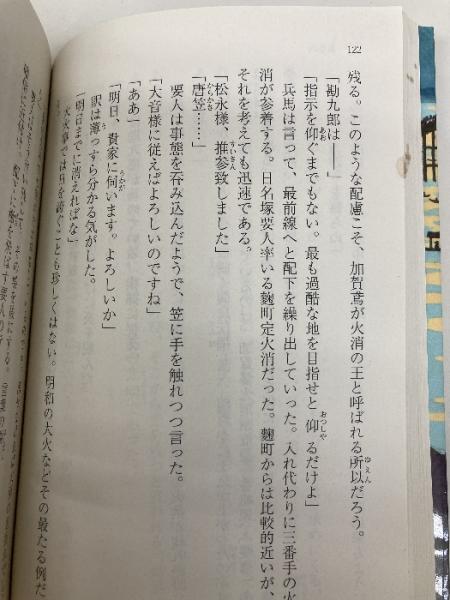 122
残る。このような配慮こそ、加賀鳶が火消の王と呼ばれる所以だろう。
「勘九郎は――」
「指示を仰ぐまでもない。最も過酷な地を目指せと仰るだけよ」
兵馬は言って、最前線へと配下を繰り出していった。入れ代わりに三番手の火
消が参着する。日名塚要人率いる麴町定火消だった。麴町からは比較的近いが、
それを考えても迅速である。
「松永様、推参致しました」
「唐笠……」
要人は事態を呑み込んだようで、笠に手を触れつつ言った。
「大音様に従えばよろしいのですね」
「ああ」
「明日、貴家に伺います。よろしいか」
訳は薄っすら分かる気がした。
「明日までに消えればな」
大火事では日を跨ぐことも珍しくはない。明和の大火などその最たる例だ